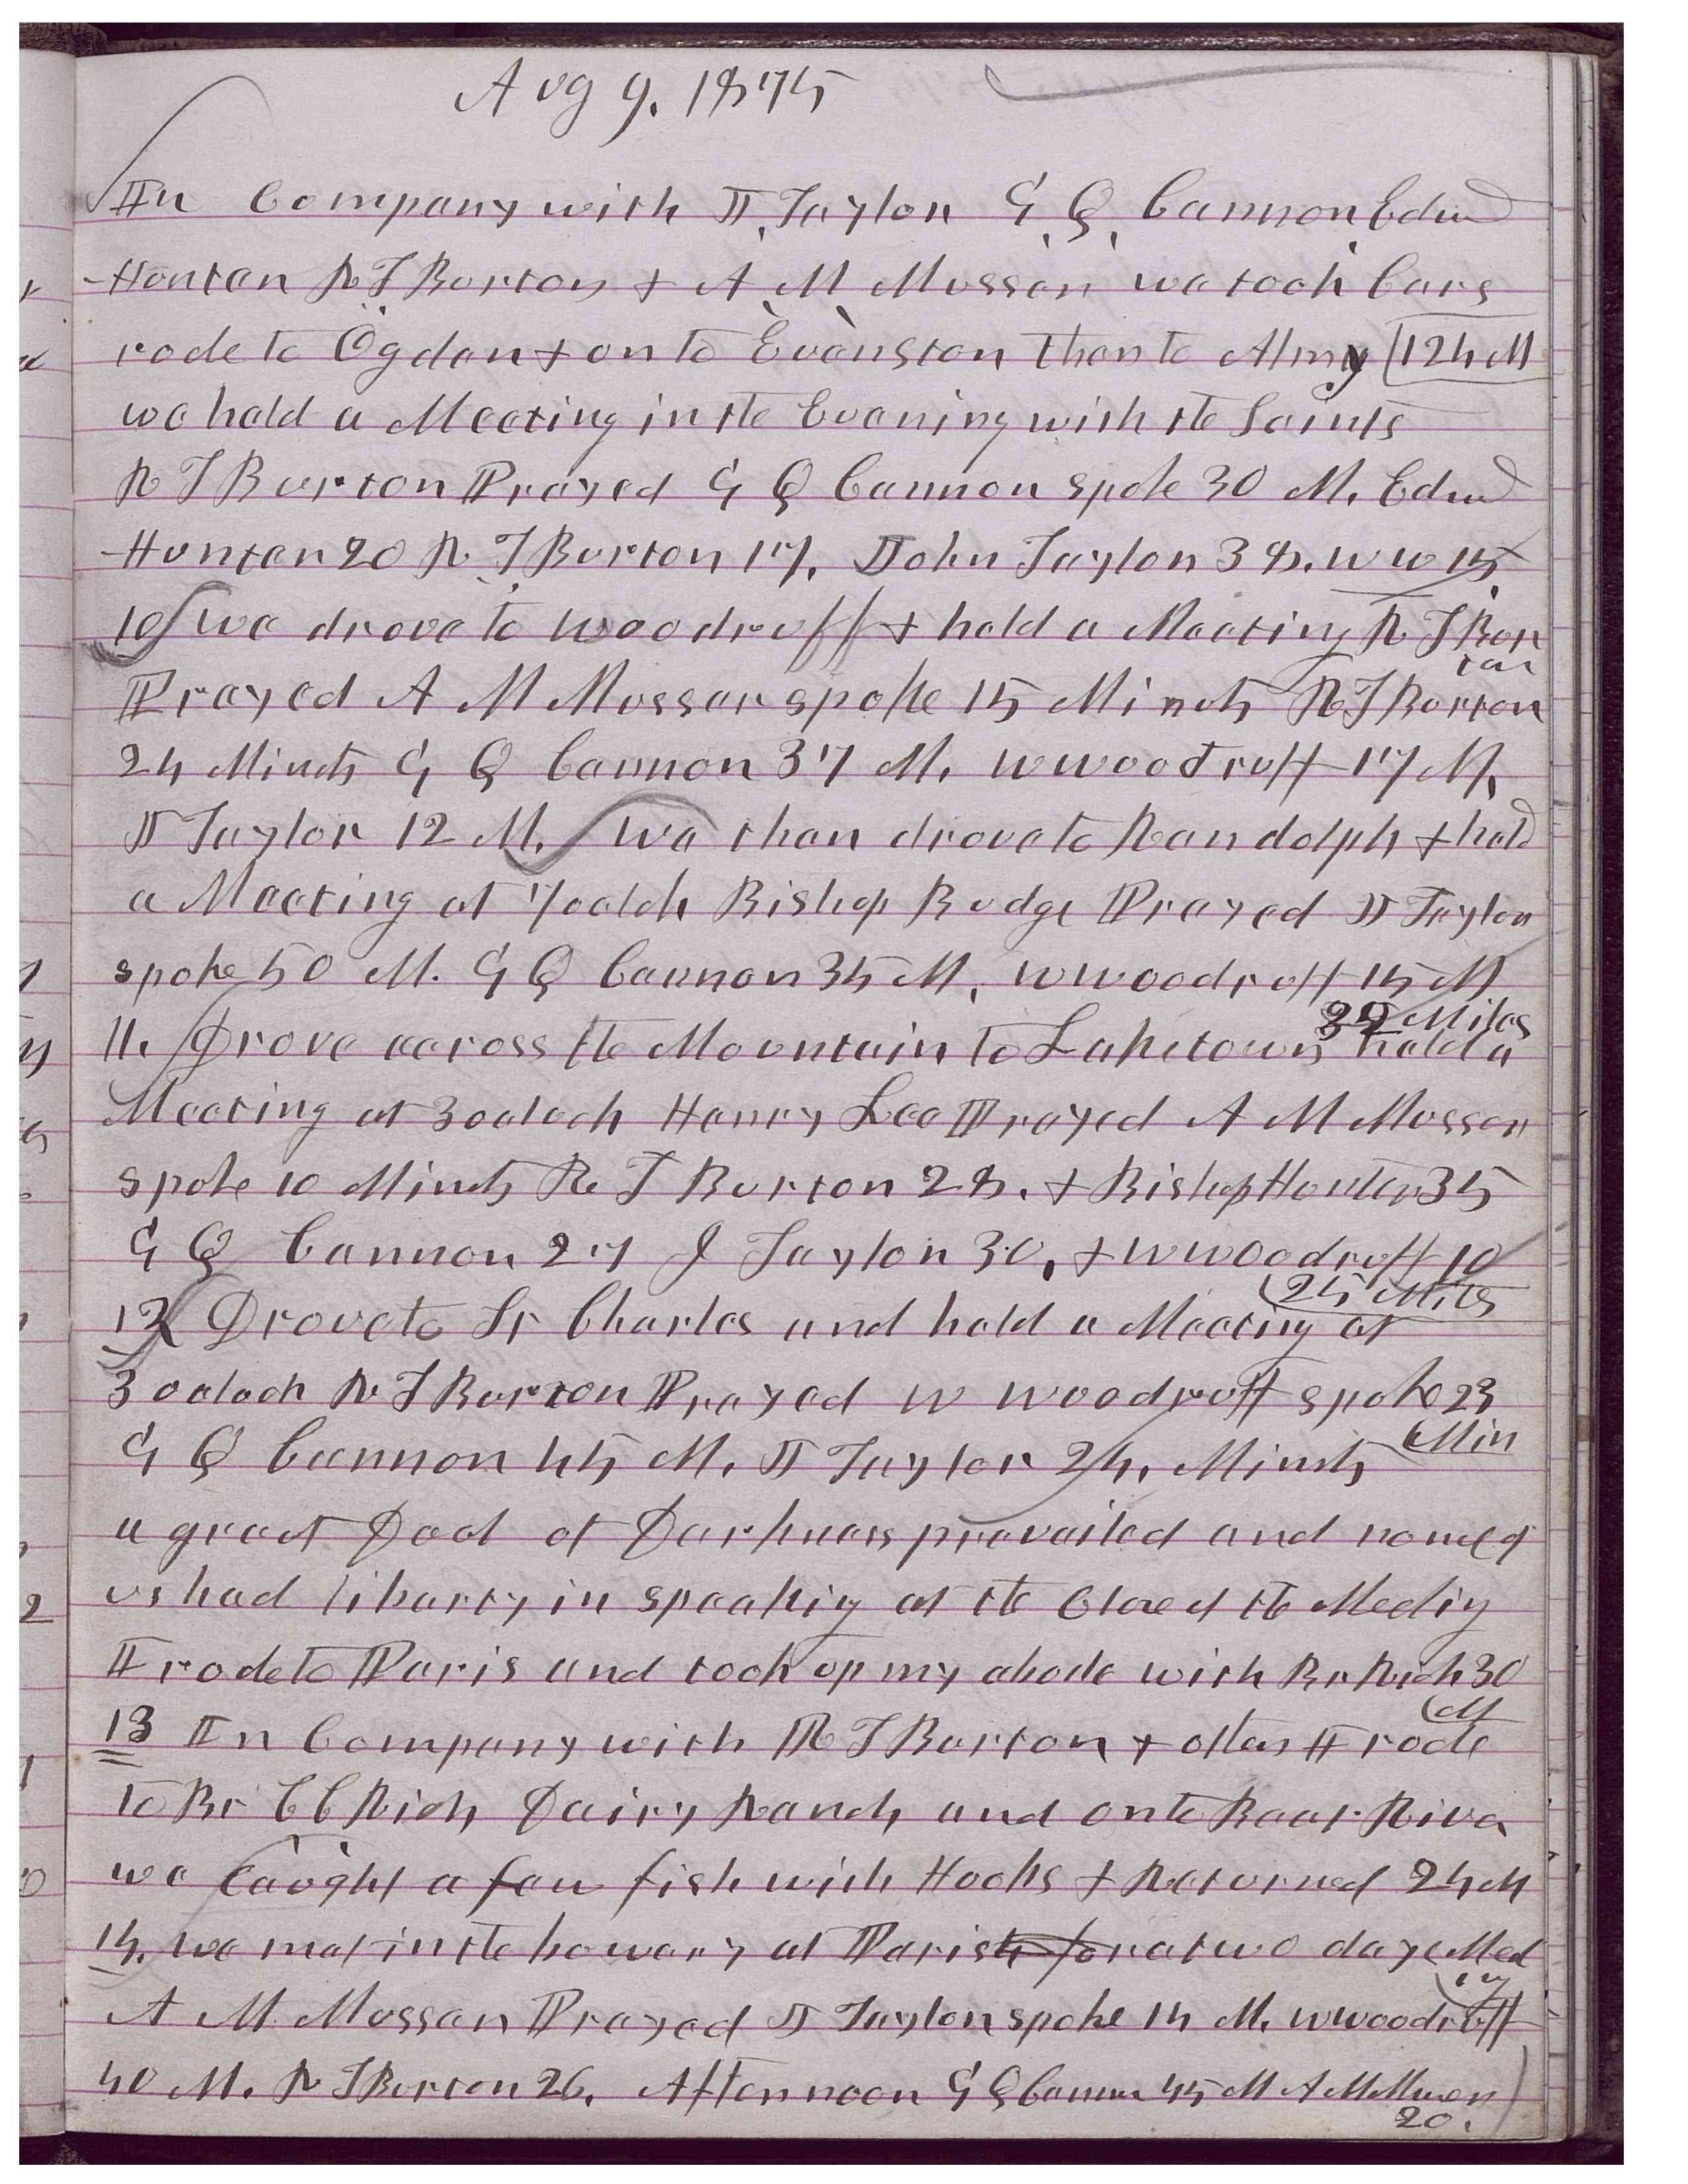 Aug 9. 1875
In Company with J. Taylor G. Q. Cannon Edwd
Hunter R T Burton & A M Musser we took Cars
rode to Ogden & on to Evanston then to Almy 124 M
we held a Meeting in the Evening with the Saints
R T Burton Prayed G Q Cannon spoke 30 M. Edwd
Hunter 20 R T Burton 17. John Taylor 38. W W 15
10 we drove to Woodruff & held a Meeting R T Bur
ton
Prayed A M Musser spoke 15 Minuts R T Burton
24 Minuts G Q Cannon 37 M. W Woodruff 17 M.
J Taylor 12 M. We then drove to Randolph & held
a Meeting at 7 oclok Bishop Budge Prayed J Taylor
spoke 50 M. G Q Cannon 35 M. W Woodruff 15 M
32 Miles
11. Drove across the Mountain to Laketown held a
Meeting at 3 oclock Henry Lee Prayed A M Musser
spoke 10 Minuts R T Burton 28. & Bishop Hunter 35
G Q Cannon 27 J Taylor 30. & W Woodruff 10
25 Miles
12 Drove to St Charles and held a Meeting at
3 oclock R T Burton Prayed W Woodruff spoke 23
Min
G Q Cannon 45 M. J Taylor 24. Minuts
a great Deal of Darkness prevailed and none of
us had liberty in speaking at the Close of the Meetig
I rode to Paris and took up my abode with Br Rich 30
M
13 In Company with R T Burton & others I rode
to Br C C Rich Dairy Ranch and on to Bear River
we caught a few fish with Hooks & Returned 24 M
14. we met in the bowery at Paris for a two days Met
ing
A M Musser Prayed J Taylor spoke 14 M. W Woodruff
40 M. R T Burton 26. Afternoon G Q Cannon 45 M A M Musser
20.